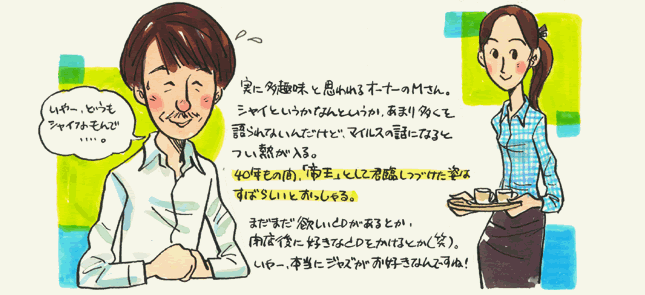 いやー、どうも
シャイなもんで
・・・・。
実に多趣味と思われるオーナーのMさん。
シャイというかなんというか、あまり多くを
語られないんだけど、マイルスの話になると
つい熱が入る。
40年もの間、「帝王」として君臨しつづけた姿は
すばらしいとおっしゃる。
まだまだ欲しいCDがあるとか、
閉店後に好きなCDをかけるとか(笑)。
いやー、本当にジャズがお好きなんですね!